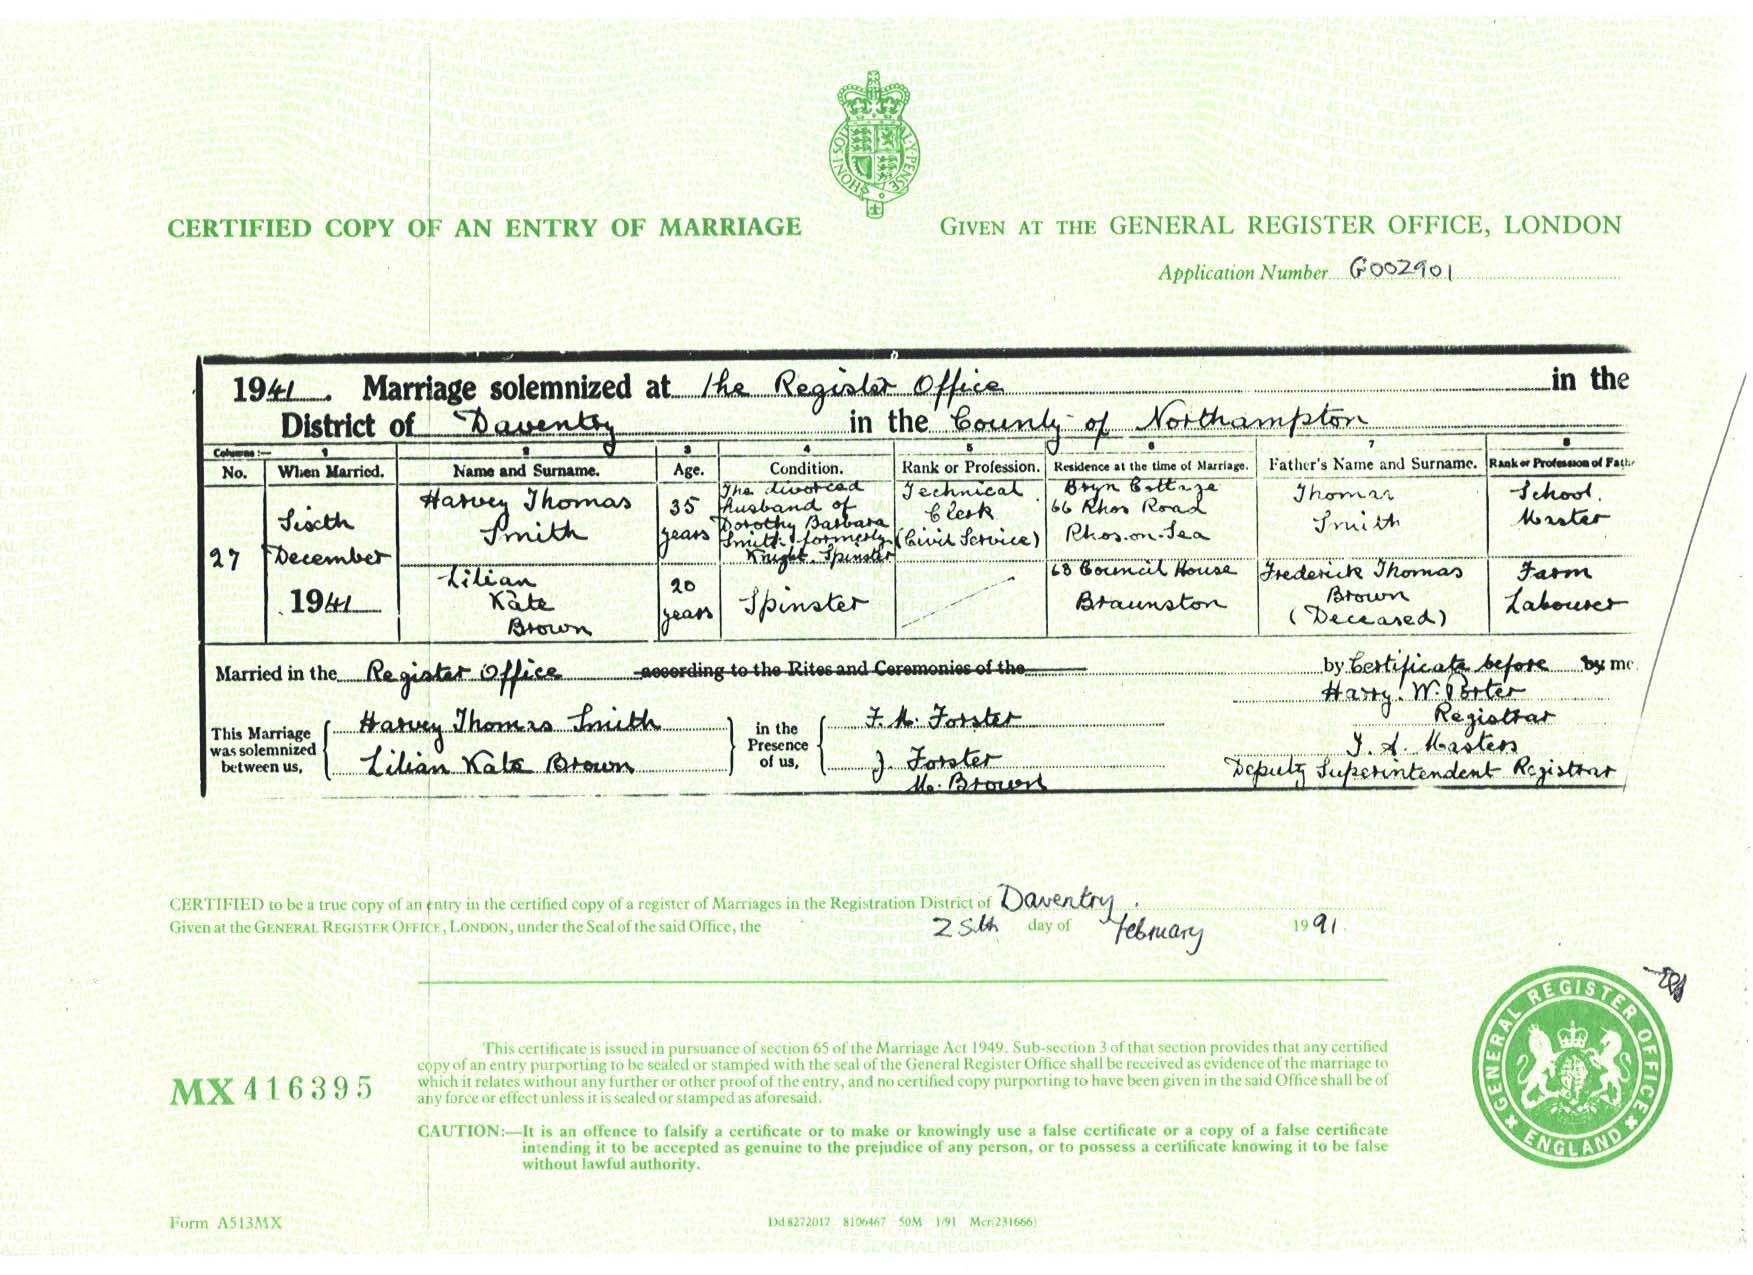 HONI SOIT QUI MAL Y PENSE
CERTIFIED COPY OF AN ENTRY OF MARRIAGE
GIVEN AT THE GENERAL REGISTER OFFICE, LONDON
Application Number G002901
1941. Marriage solemnized at the Register Office in the
District of Daventry in the County of Northampton
Columns:— 1 2 3 4 5 6 7 8
No. When Married. Name and Surname. Age. Condition. Rank or Profession. Residence at the time of Marriage. Father's Name and Surname. Rank or Profession of Fathe
27
Sixth
December
1941
Harvey Thomas
Smith
35
years
The divorced
husband of
Dorothy Barbara
Smith formerly
Knight. Spinster
Technical
Clerk
(Civil Service)
Bryn Cottage
66 Rhos Road
Rhos-on-Sea
Thomas
Smith
School
Master
Lilian
Kate
Brown
20
years
Spinster
68 Council House
Braunston
Frederick Thomas
Brown
(Deceased)
Farm
Labourer
Married in the Register Office according to the Rites and Ceremonies of the by Certificate before by me
Harry. W. Porter
Registrar
This Marriage
was solemnized
between us,
Harvey Thomas Smith
Lilian Kate Brown
in the
Presence
of us,
F. M. Forster
J. Forster
M. Brown
Masters
Deputy Superintendent Registrar
CERTIFIED to be a true copy of an entry in the certified copy of a register of Marriages in the Registration District of Daventry.
Given at the GENERAL REGISTER OFFICE, LONDON, under the Seal of the said Office, the 25th day of February 1991.
This certificate is issued in pursuance of section 65 of the Marriage Act 1949. Sub-section 3 of that section provides that any certified
copy of an entry purporting to be sealed or stamped with the seal of the General Register Office shall be received as evidence of the marriage to
which it relates without any further or other proof of the entry, and no certified copy purporting to have been given in the said Office shall be of
any force or effect unless it is sealed or stamped as aforesaid.
MX 416395
CAUTION:—It is an offence to falsify a certificate or to make or knowingly use a false certificate or a copy of a false certificate
intending it to be accepted as genuine to the prejudice of any person, or to possess a certificate knowing it to be false
without lawful authority.
GENERAL REGISTER OFFICE
ENGLAND
Form A513MX
Dd 8272017 8106467 50M 1/91 Mcr(231666)